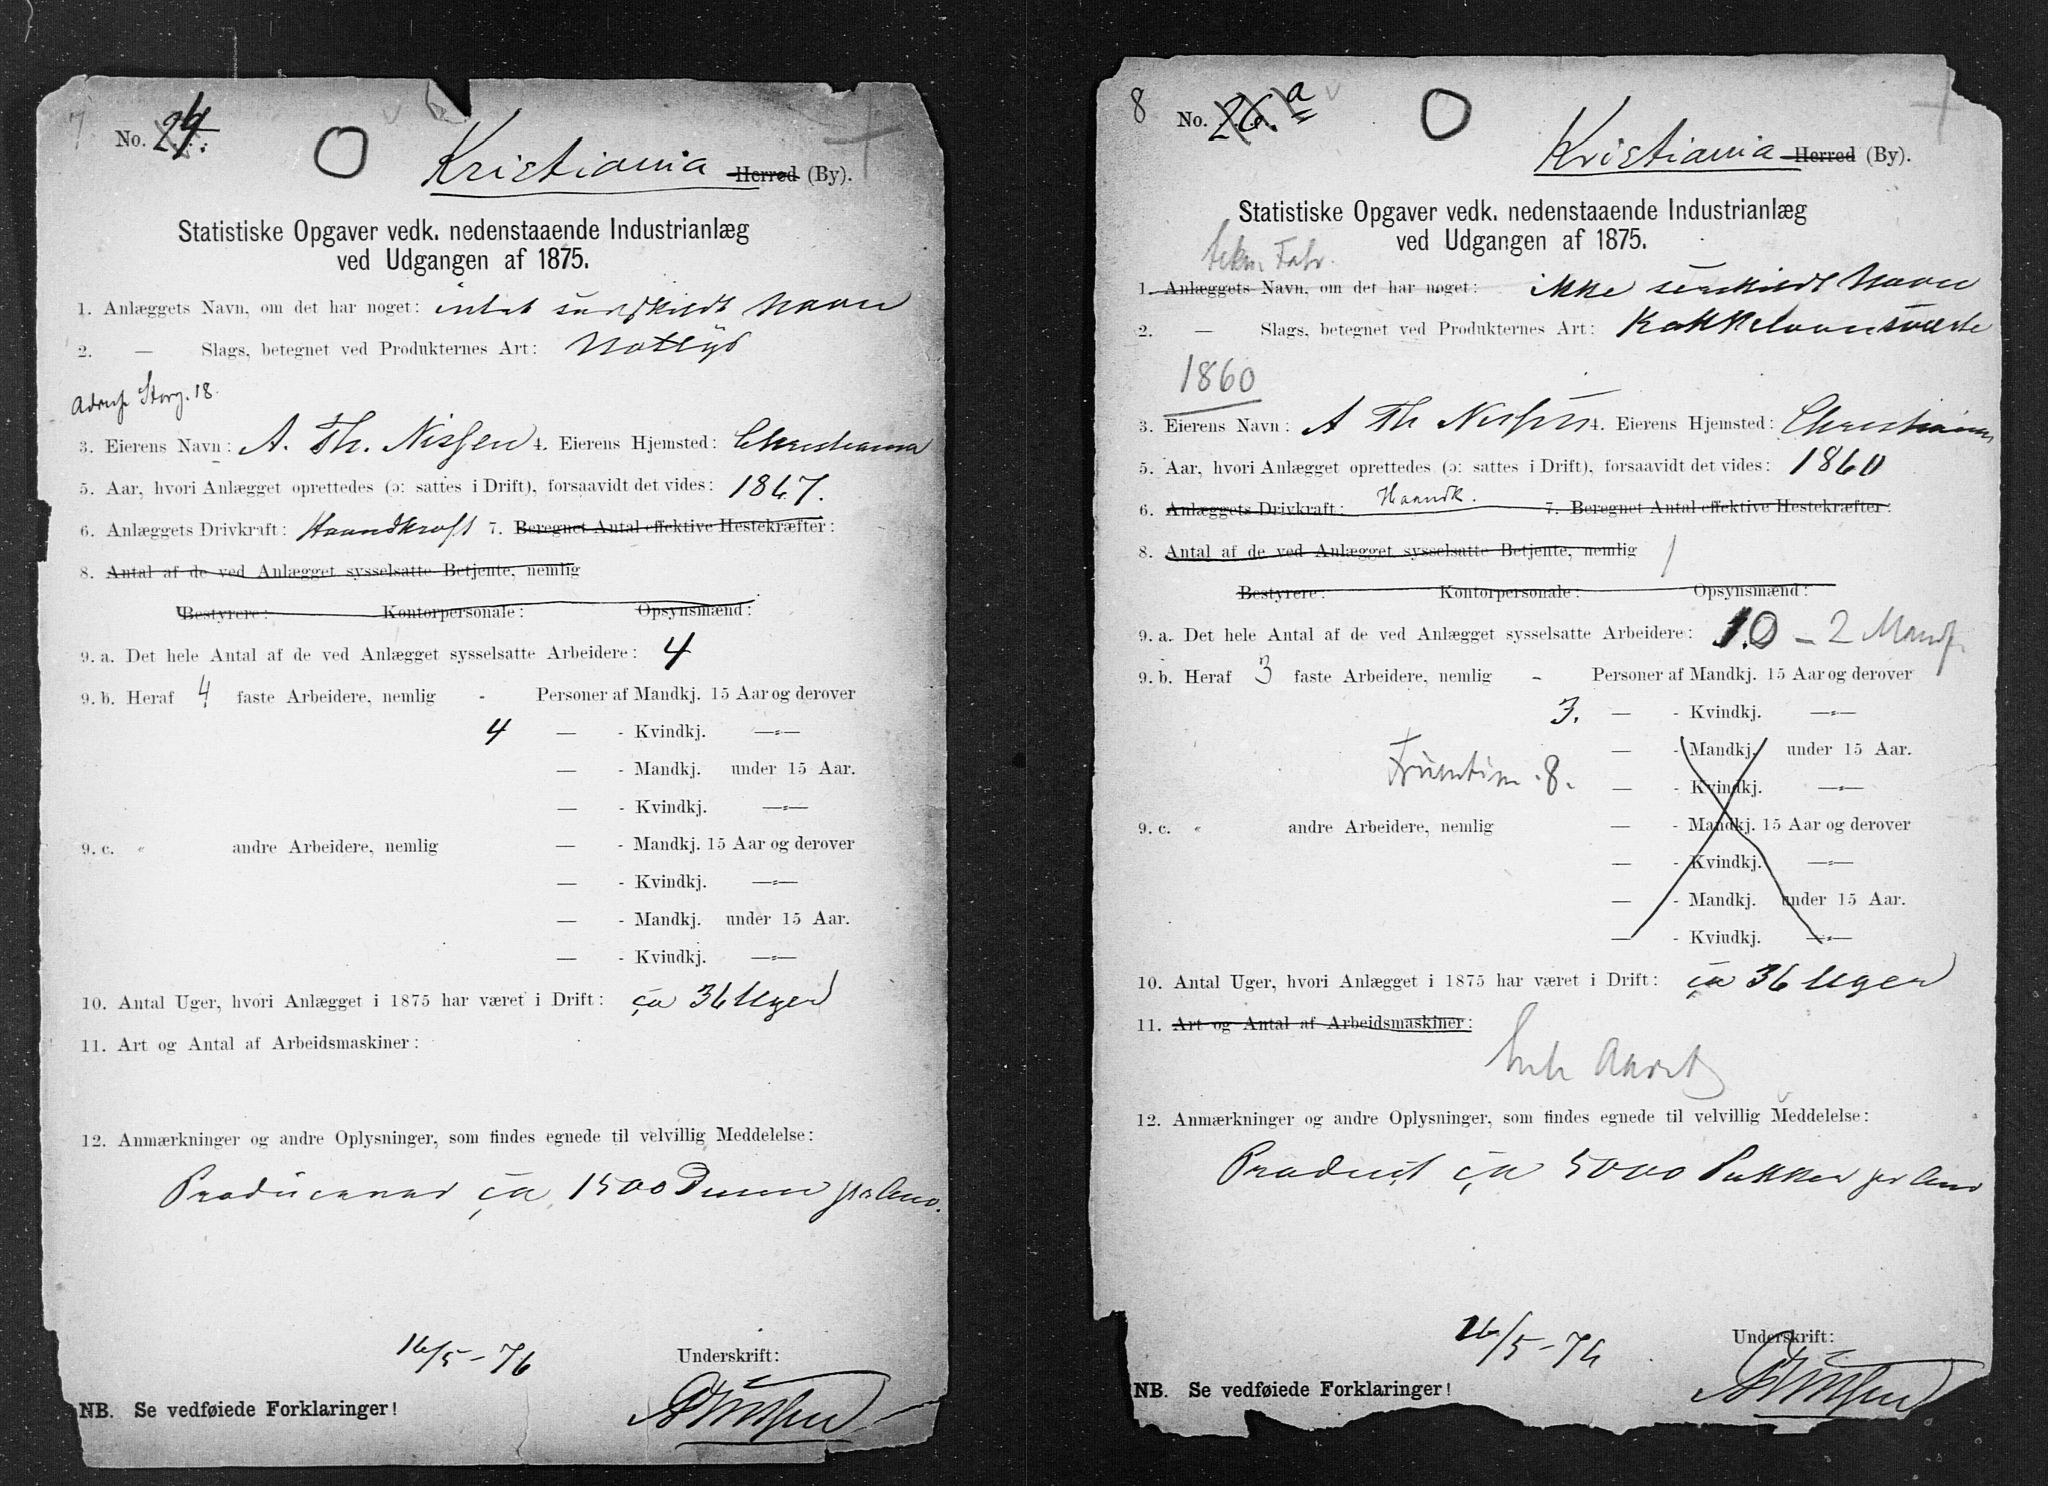 7
No. 24.
O
Kristiania Herred (By).
Statistiske Opgaver vedk. nedenstaaende Industrianlæg
ved Udgangen af 1875.
1. Anlæggets Navn, om det har noget: intet særskildt Navn
2. — Slags, betegnet ved Produkternes Art: Natlys
Adresse Storg. 18.
3. Eierens Navn: A. Th. Nissen 4. Eierens Hjemsted: Christiania
5. Aar, hvori Anlægget oprettedes (ɔ: sattes i Drift), forsaavidt det vides: 1867.
6. Anlæggets Drivkraft: Haandkraft 7. Beregnet Antal effektive Hestekræfter:
8. Antal af de ved Anlægget sysselsatte Betjente, nemlig
Bestyrere: Kontorpersonale: Opsynsmænd:
9. a. Det hele Antal af de ved Anlægget sysselsatte Arbeidere: 4
9. b. Heraf 4 faste Arbeidere, nemlig - Personer af Mandkj. 15 Aar og derover
4 — - Kvindkj. —„—
— - Mandkj. under 15 Aar.
— - Kvindkj. —„—
9. c. „ andre Arbeidere, nemlig — - Mandkj. 15 Aar og derover
— - Kvindkj. —„—
— - Mandkj. under 15 Aar.
— - Kviudkj. —„—
10. Antal Uger, hvori Anlægget i 1875 har været i Drift: ca 36 Uger
11. Art og Antal af Arbeidsmaskiner:
12. Anmærkninger og andre Oplysninger, som findes egnede til velvillig Meddelelse:
Producerer ca 1500 Dusin pr Anno.
16/5-76
Underskrift:
A Th Nissen
NB. Se vedføiede Forklaringer!
8
No. 26. a
O
Kristiania Herred (By).
Statistiske Opgaver vedk. nedenstaaende Industrianlæg
ved Udgangen af 1875.
tekn. Fabr.
1. Anlæggets Navn, om det har noget: ikke særskildt Navn
2. — Slags, betegnet ved Produkternes Art: Kakkelovnsværte
1860
3. Eierens Navn: A Th Nissen 4. Eierens Hjemsted: Christiania
5. Aar, hvori Anlægget oprettedes (ɔ: sattes i Drift), forsaavidt det vides: 1860
6. Anlæggets Drivkraft: Haandk. 7. Beregnet Antal effektive Hestekræfter:
8. Antal af de ved Anlægget sysselsatte Betjente, nemlig 1
Bestyrere: Kontorpersonale: Opsynsmænd:
9. a. Det hele Antal af de ved Anlægget sysselsatte Arbeidere: 10 - 2 Mandf.
9. b. Heraf 3 faste Arbeidere, nemlig - Personer af Mandkj. 15 Aar og derover
3. — - Kvindkj. —„—
— - Mandkj. under 15 Aar.
Fruentim. 8. — - Kvindkj. —„—
9. c. „ andre Arbeidere, nemlig — - Mandkj. 15 Aar og derover
— - Kvindkj. —„—
— - Mandkj. under 15 Aar.
— - Kviudkj. —„—
10. Antal Uger, hvori Anlægget i 1875 har været i Drift: ca 36 Uger
11. Art og Antal af Arbeidsmaskiner:
hele Aaret
12. Anmærkninger og andre Oplysninger, som findes egnede til velvillig Meddelelse:
Product ca 5000 Pakker pr Anno
16/5-76
Underskrift:
A Th Nissen
NB. Se vedføiede Forklaringer!